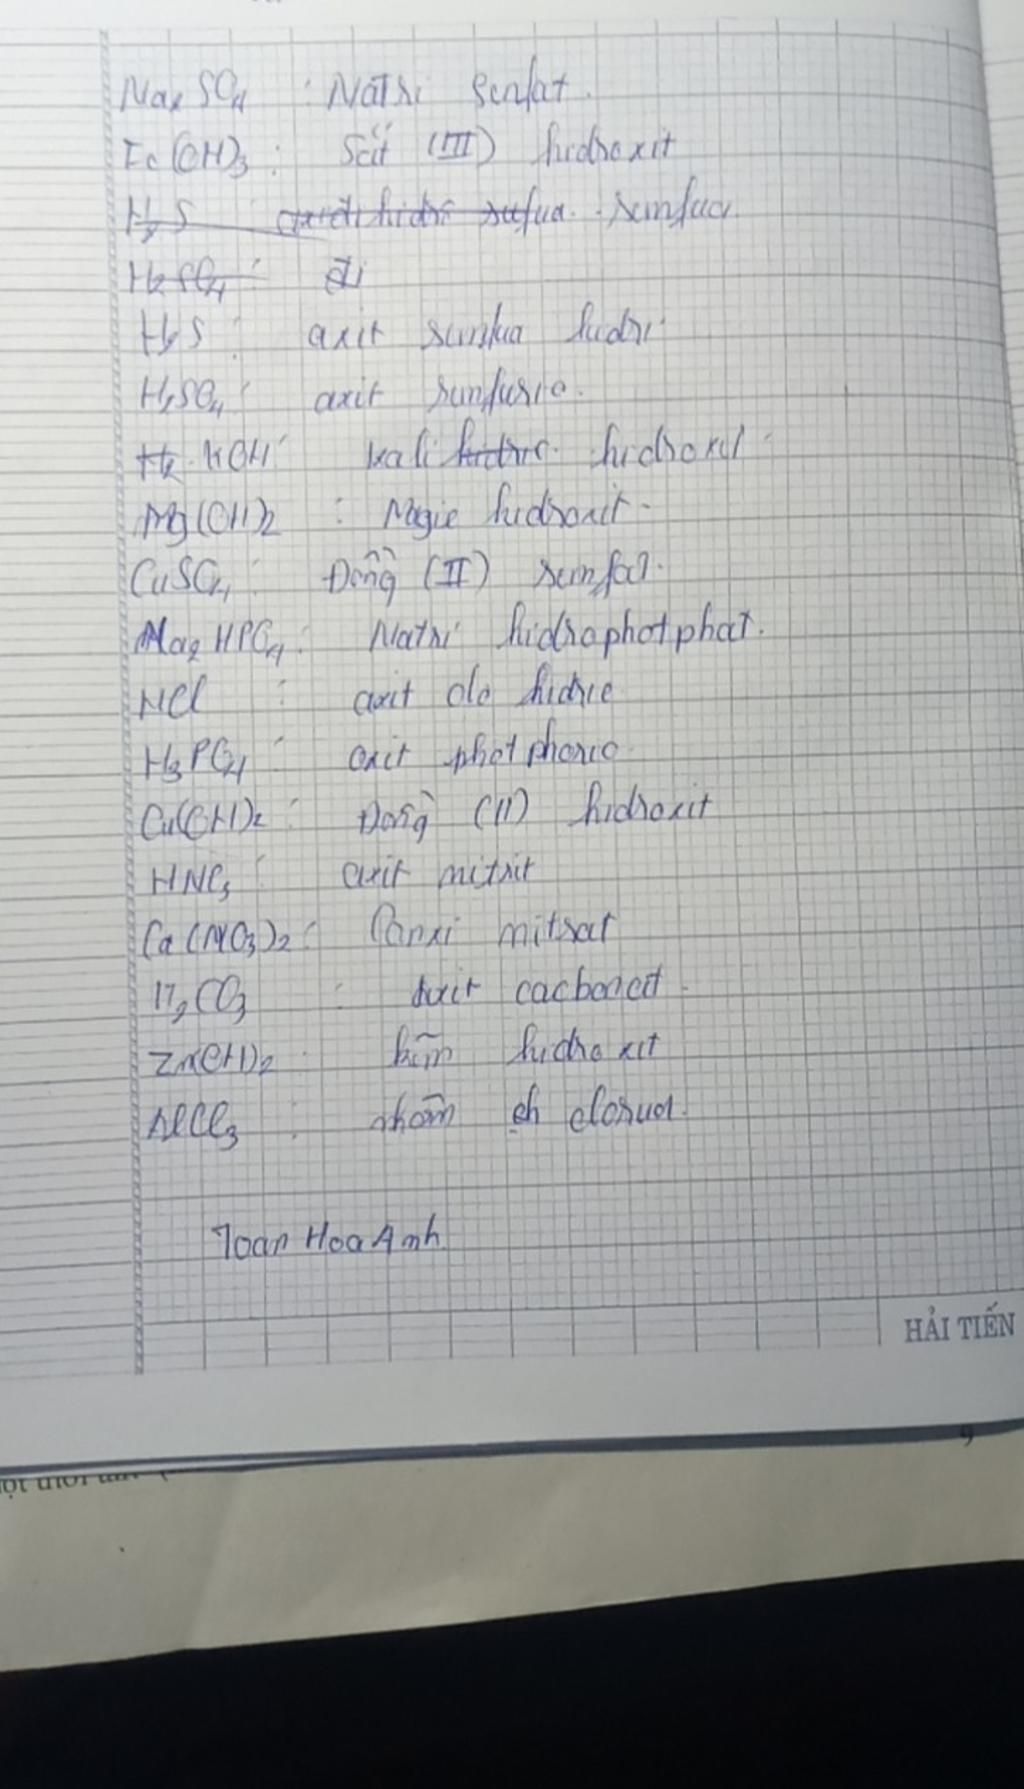 Na2SO4 : Natri sunfat.
Fe(OH)3 : Sắt (III) hidroxit
H2S sunfua.
H2SO4 : đi
H2S : axit sunfua hidri
H2SO4 : axit sunfuric.
H2 KOH : kali hidroxit
Mg(OH)2 : Magie hidroxit.
CuSO4 : Đồng (II) sunfat.
Na2HPO4 : Natri hidrophotphat.
HCl : axit clo hidric
H3PO4 : axit photphoric
Cu(OH)2 : Đồng (II) hidroxit
HNO3 : axit nitrit
Ca(NO3)2 : Canxi nitrat
H2CO3 : axit cacbonat
Zn(OH)2 : kẽm hidro xit
AlCl3 : nhôm clorua.
Toan Hoa Anh
HẢI TIẾN